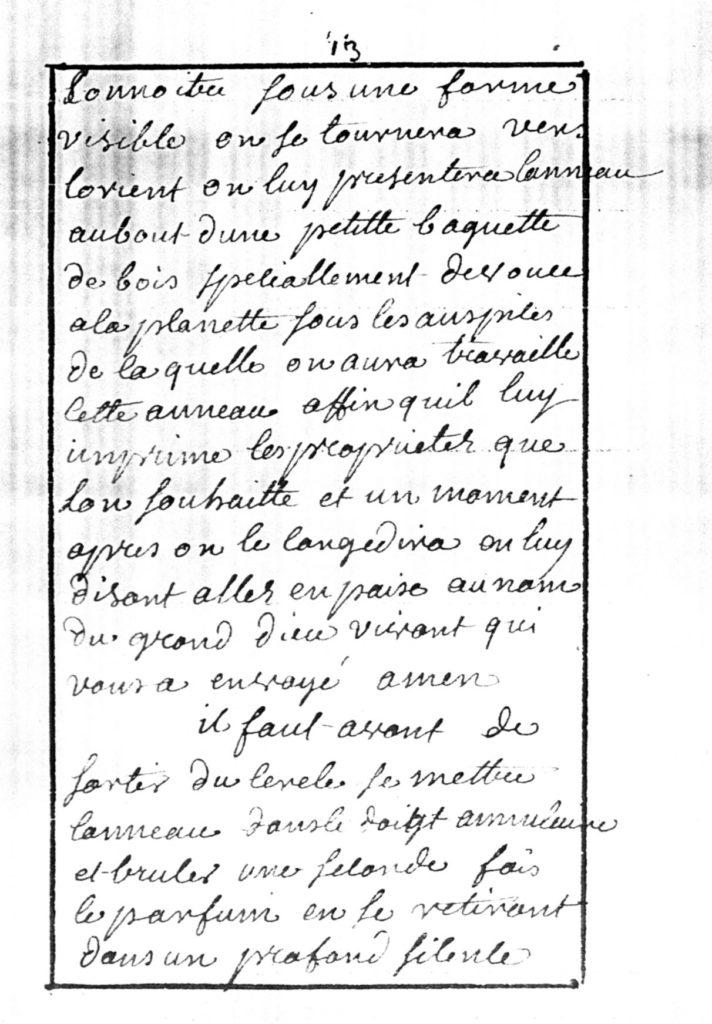 13
connoitre sous une forme
visible on se tournera vers
lorient on luy presentera lanneau
au bout dune petitte baguette
de bois speciallement devouee
a la planette sous les auspices
de la quelle on aura travaille
cette anneau affin quil luy
imprime les proprietez que
lon souhaitte et un moment
apres on le congedira en luy
disant allez en paise au nom
du grand dieu vivant qui
vous a envoyé amen
il faut avant de
sortir du cercle se mettre
lanneau dans le doigt annulaire
et bruler une seconde fois
le parfum en se retirant
dans un profond silence